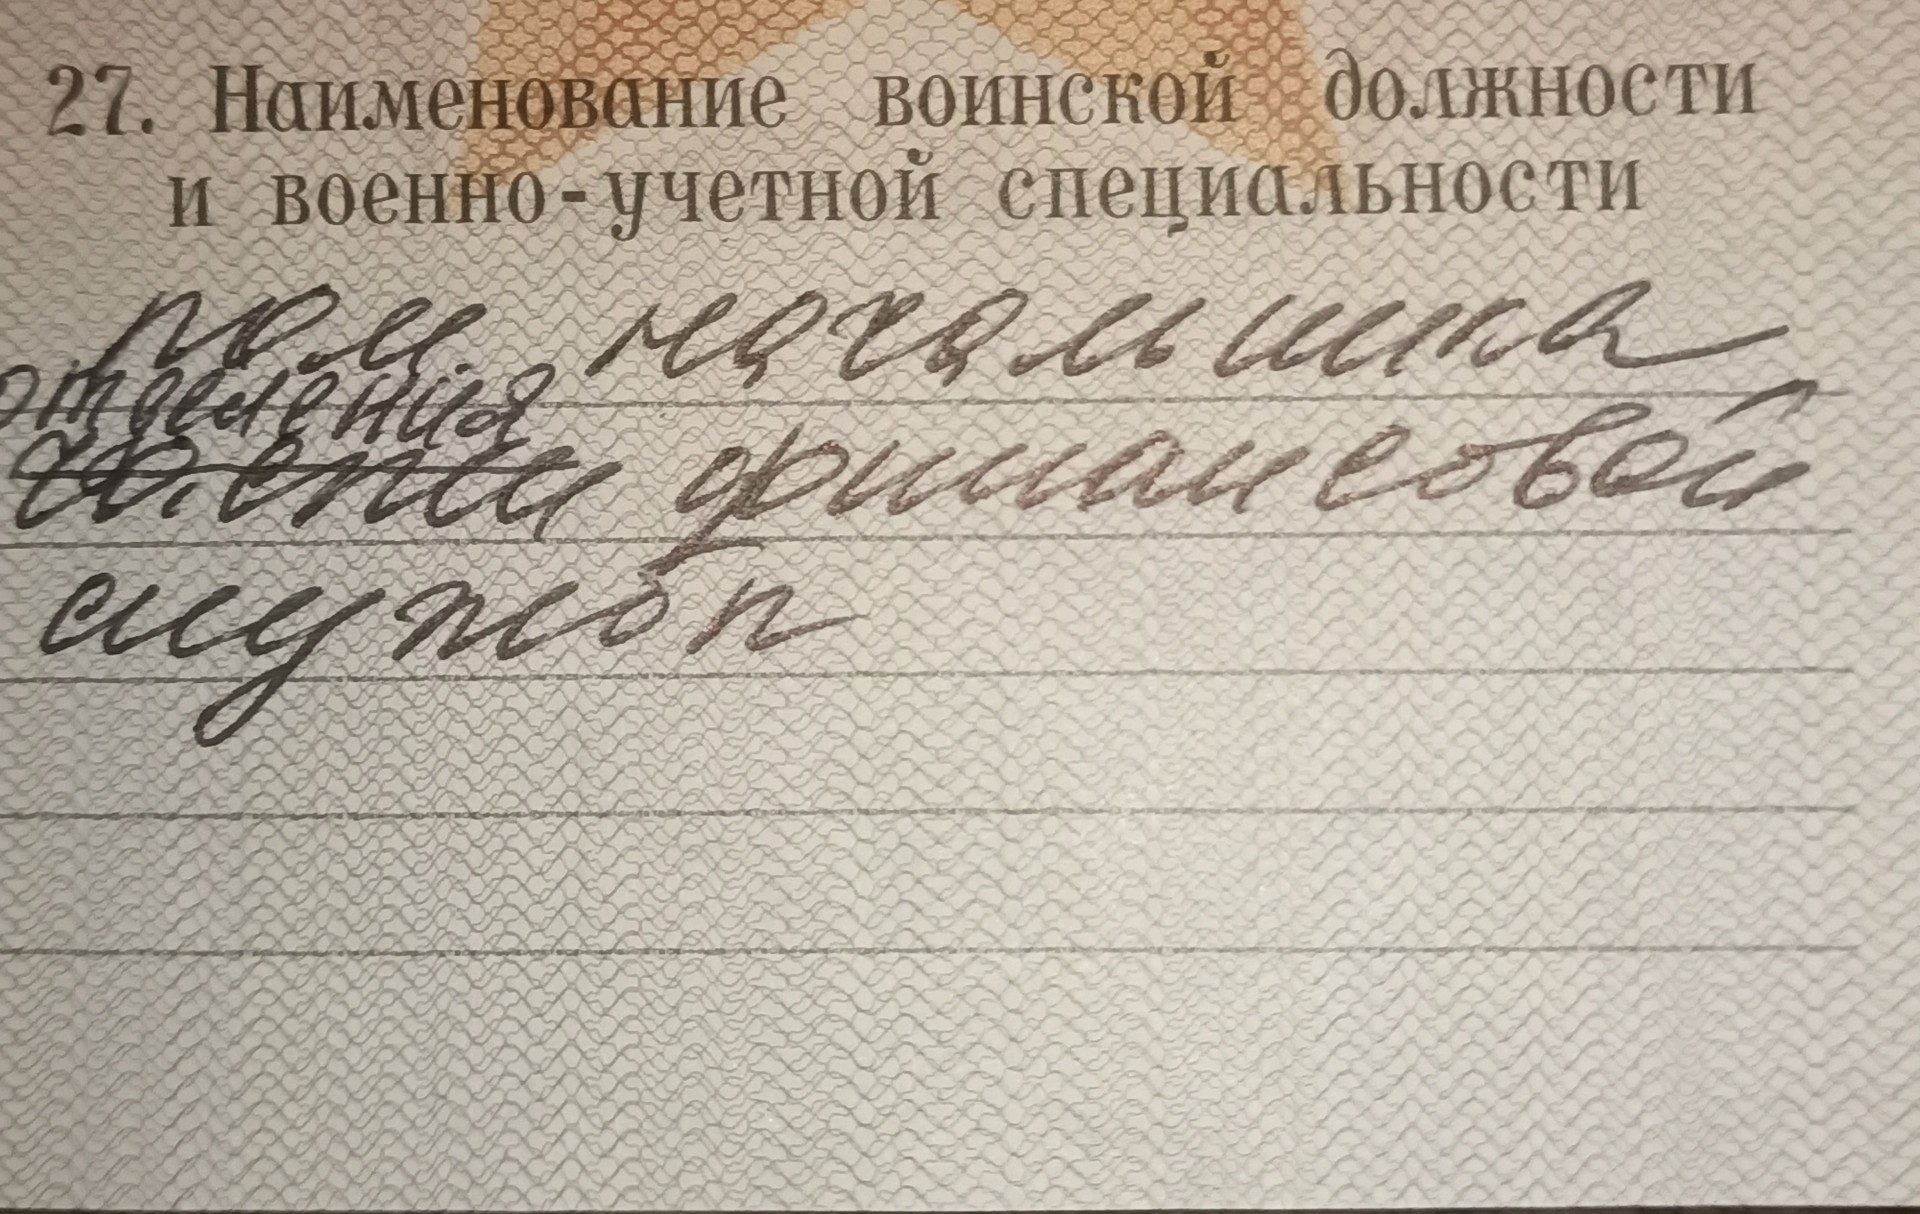 27. Наименование воинской должности
и военно-учетной специальности
пом начальника
отделения
финансовой
служб